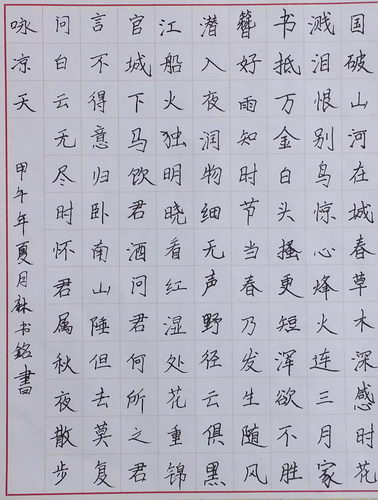 国破山河在城春草木深感时花
溅泪恨别鸟惊心烽火连三月家
书抵万金白头搔更短浑欲不胜
簪好雨知时节当春乃发生随风
潜入夜润物细无声野径云俱黑
江船火独明晓看红湿处花重锦
官城下马饮君酒问君何所之君
言不得意归卧南山陲但去莫复
问白云无尽时怀君属秋夜散步
咏凉天
甲午年夏月林书铭書